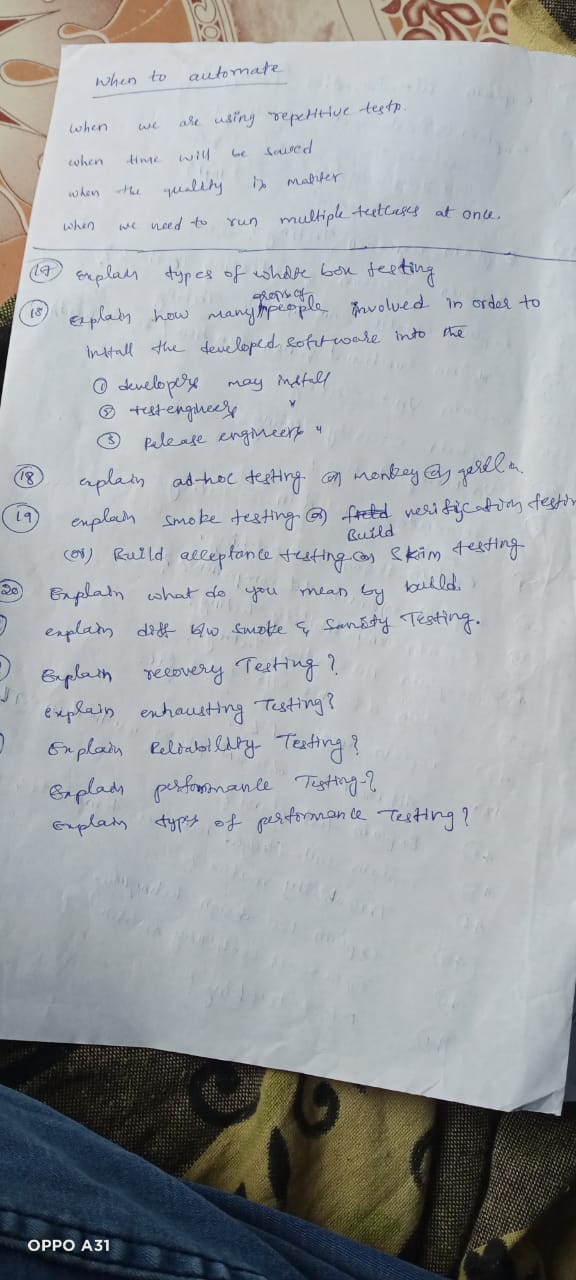 When to automate
when we are using repetitive tests.
when time will be saved
when the quality is matter
when we need to run multiple testcases at once.
17 explain types of white box testing
18 Explain how many groups of people involved in order to
install the developed software into the
① developers may install
② test engineers "
③ Release engineers "
18 explain ad-hoc testing or monkey or
19 explain smoke testing or Build verification testin
(or) Build acceptance testing or Skim testing
20 Explain what do you mean by build.
explain diff b/w smoke & Sanity Testing.
Explain recovery Testing?
explain exhausting Testing?
Explain Reliability Testing?
Explain performance Testing?
Explain types of performance Testing?
OPPO A31